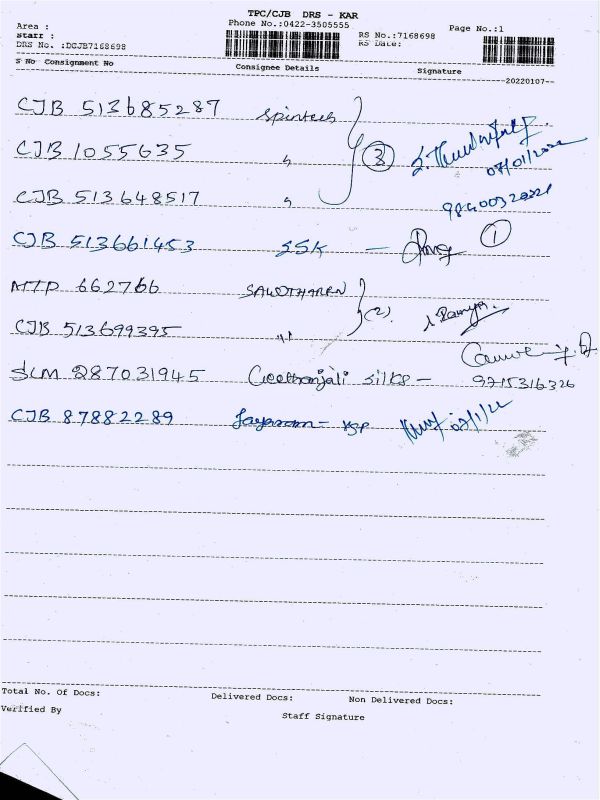 TPC/CJB DRS - KAR
Area :
Phone No.:0422-3505555
Page No.:1
Staff :
RS No.:7168698
DRS No. :DCJB7168698
RS Date:
S No Consignment No
Consignee Details
Signature
20220107
CJB 513685287
CJB 1055635 " 3
07/01/2022
CJB 513648517 "
CJB 513661453 SSK - 1
MTP 662766
(2)
CJB 513699395 "
SLM 287031945 Geethanjali Silks - 9715316326
CJB 87882289 07/1/22
Total No. Of Docs:
Delivered Docs:
Non Delivered Docs:
Verified By
Staff Signature